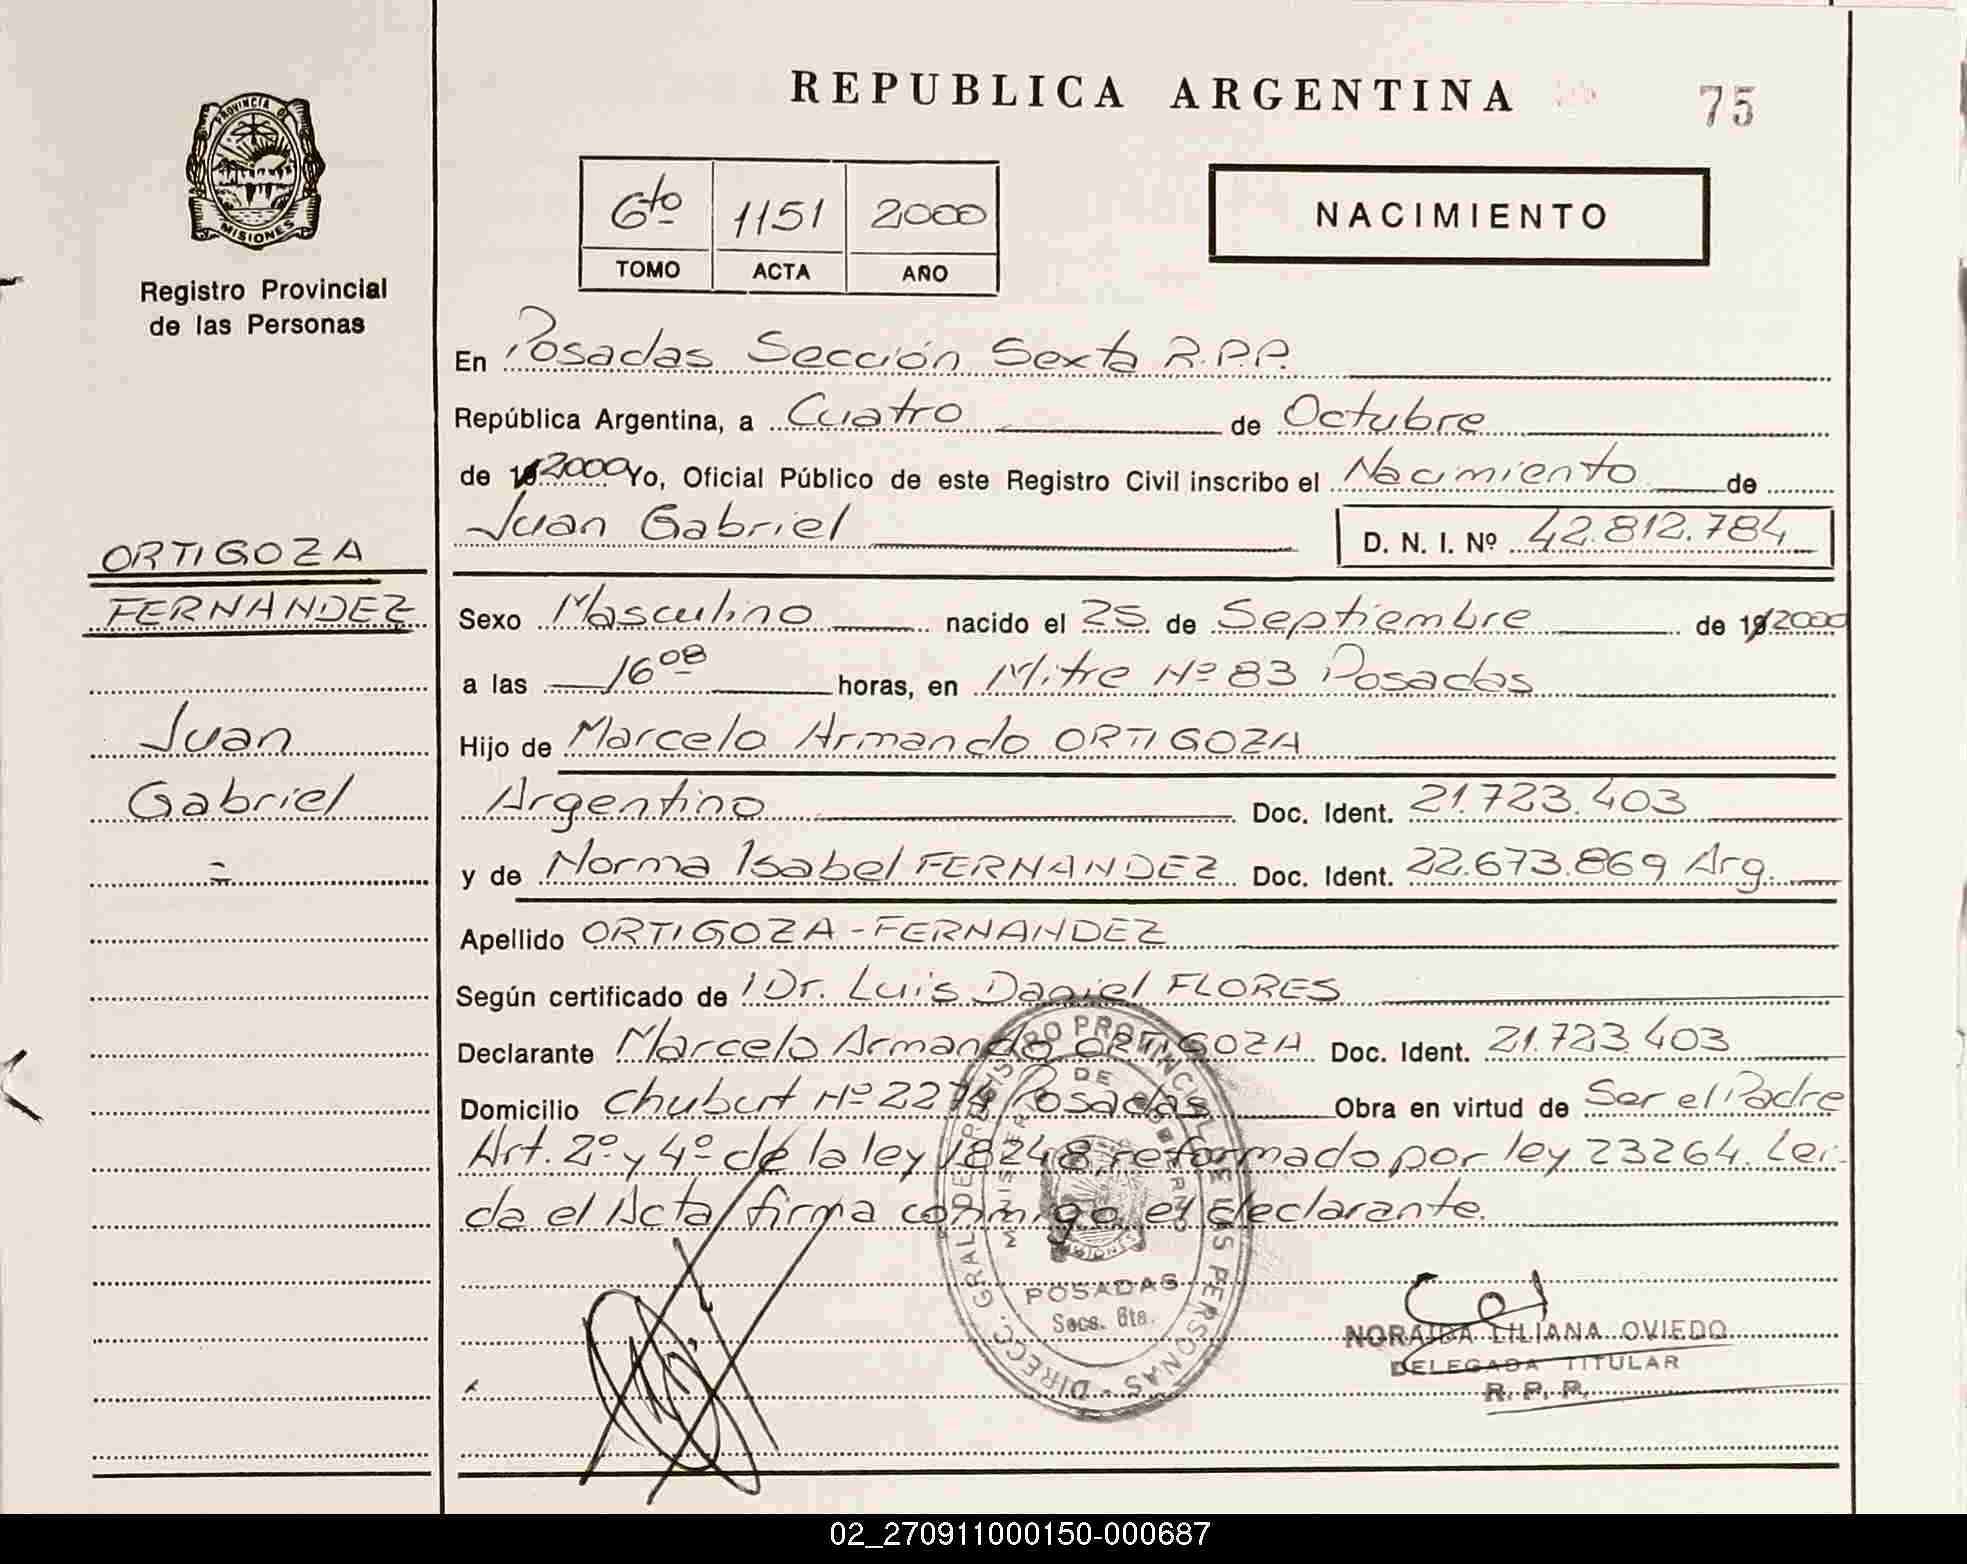 REPUBLICA ARGENTINA
75
PROVINCIA DE
MISIONES
Registro Provincial
de las Personas
6to 1151 2000
TOMO ACTA AÑO
NACIMIENTO
En Posadas Sección Sexta R.P.P.
República Argentina, a Cuatro de Octubre
de 2000 Yo, Oficial Público de este Registro Civil inscribo el Nacimiento de
Juan Gabriel D. N. I. Nº 42.812.784
ORTIGOZA
FERNANDEZ
Juan
Gabriel
Sexo Masculino nacido el 25 de Septiembre de 19 2000
a las 16 08 horas, en Mitre Nº 83 Posadas
Hijo de Marcelo Armando ORTIGOZA
Argentino Doc. Ident. 21.723.403
y de Norma Isabel FERNANDEZ Doc. Ident. 22.673.869 Arg.
Apellido ORTIGOZA-FERNANDEZ
Según certificado de Dr. Luis Daniel FLORES
Declarante Marcelo Armando ORTIGOZA Doc. Ident. 21.723.403
Domicilio Chubut Nº 2274 Posadas Obra en virtud de Ser el Padre
Art. 2º y 4º de la ley 18248, reformado por ley 23264. Lei-
da el Acta firma conmigo el declarante.
DIRECC. GRAL. DE REGISTRO PROVINCIAL DE LAS PERSONAS
MINISTERIO DE GOBIERNO
MISIONES
POSADAS
Secc. 6ta.
NORAIDA LILIANA OVIEDO
DELEGADA TITULAR
R. P. P.
02_270911000150-000687